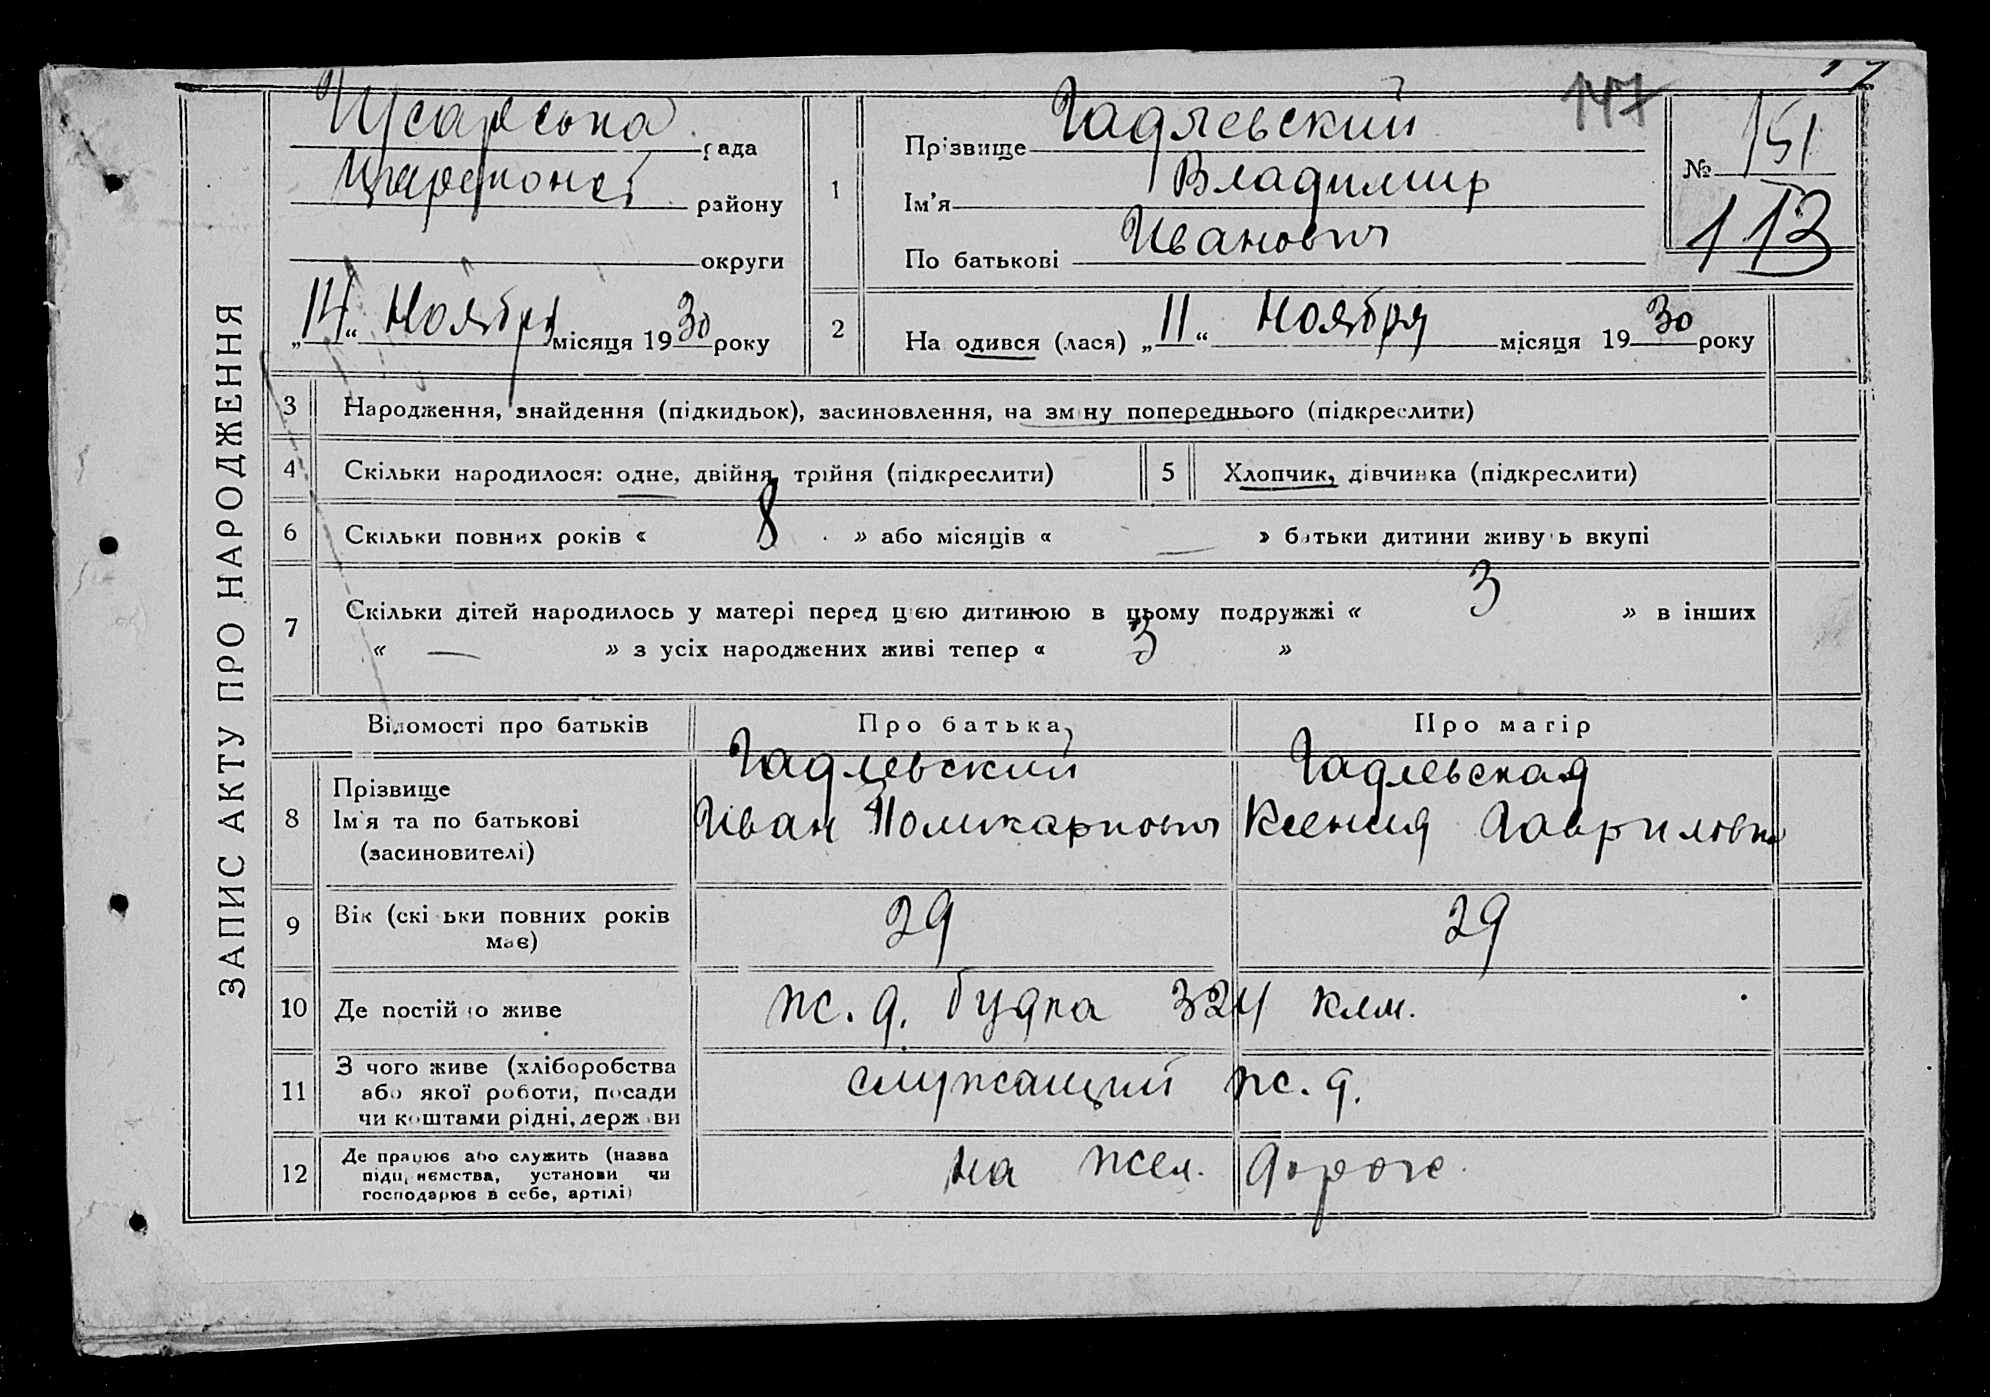 ЗАПИС АКТУ ПРО НАРОДЖЕННЯ
рада
району
округи
„14“ Ноября місяця 1930 року
147
1
Прізвище Гадлевский
Ім'я Владимир
По батькові Иванович
№ 151
113
2
На одився (лася) „11“ Ноября місяця 1930 року
3 Народження, знайдення (підкидьок), засиновлення, на зм ну попереднього (підкреслити)
4 Скільки народилося: одне, двійня, трійня (підкреслити)
5 Хлопчик, дівчинка (підкреслити)
6 Скільки повних років « 8 » або місяців « — » батьки дитини живу ь вкупі
7 Скільки дітей народилось у матері перед цією дитиною в цьому подружжі « 3 » в інших
« — » з усіх народжених живі тепер « 3 »
Відомості про батьків
Про батька
Про матір
8
Прізвище
Ім'я та по батькові
(засиновителі)
Гадлевский
Иван Поликарпович
Гадлевская
Ксения Гавриловна
9
Вік (скі ьки повних років
має)
29
29
10 Де постій о живе
ж. д. будка 324 клм.
11
З чого живе (хліборобства
або якої роботи, посади
чи коштами рідні, держ ви
служащий ж. д.
12
Де працює або служить (назва
підп ємства, установи чи
господарює в себе, артілі)
на жел. дороге.